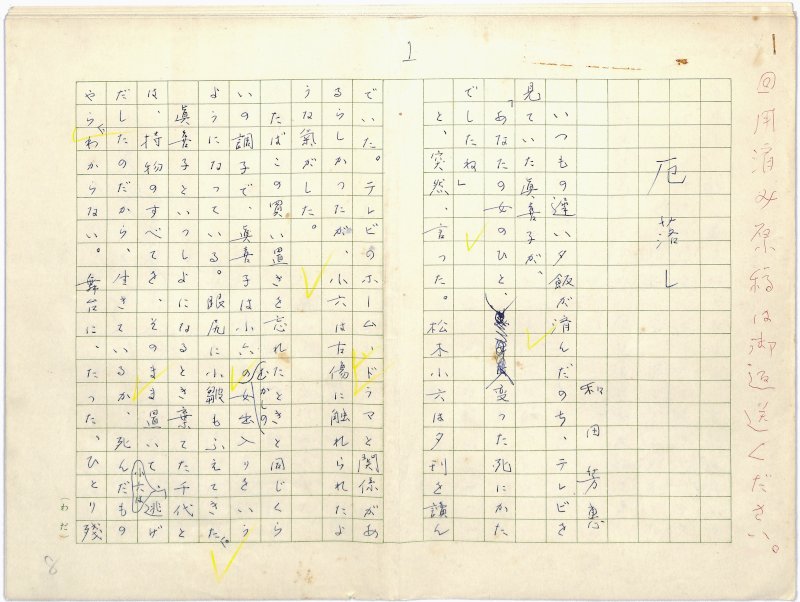 1
回用済み原稿は御返送ください。
厄落し
和田芳恵
いつもの遅い夕飯が済んだのち、テレビを
見ていた眞喜子が、
「あなたの女のひと、変った死にかた
でしたね」
と、突然、言った。松木小六は夕刊を讀ん
でいた。テレビのホーム、ドラマと関係があ
るらしかったが、小六は古傷に触れられたよ
うな氣がした。
たばこの買い置きを忘れたときと同じくら
いの調子で、眞喜子は小六のむかしの女出入りをいう
ようになっている。眼尻に小皺もふえてきた。
眞喜子といっしょになるとき棄てた千代と
は、持物のすべてを、そのまま置いて、小六は逃げ
だしたのだから、生きているか、死んだもの
やらわからない。舞台に、たった、ひとり残
(わだ)
8